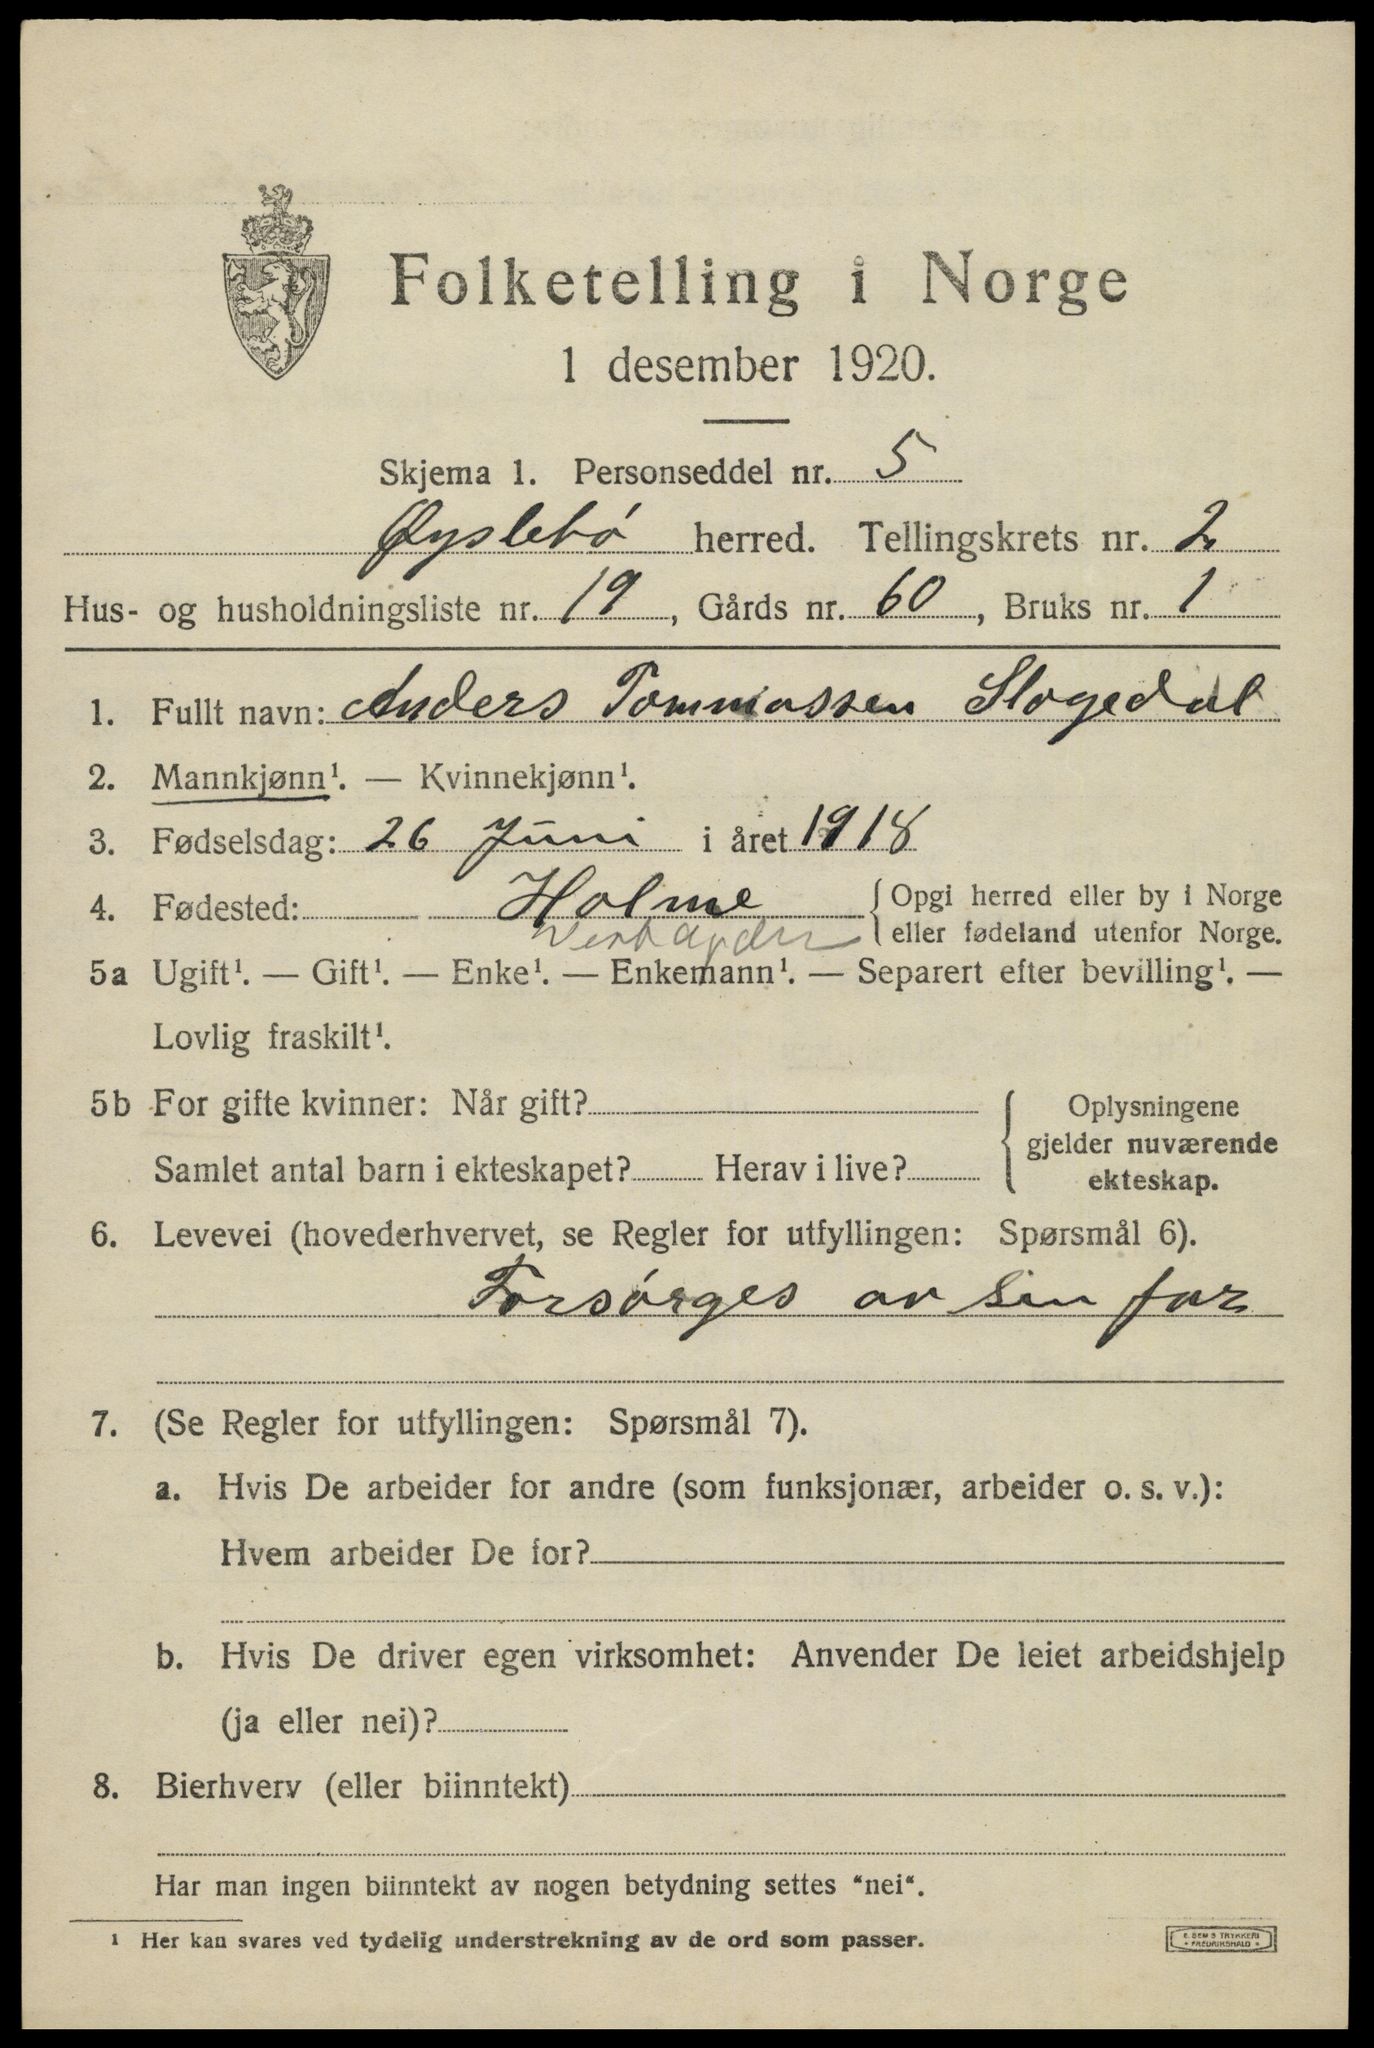 Folketelling i Norge
1 desember 1920.
Skjema 1. Personseddel nr. 5
Øyslebó herred. Tellingskrets nr. 2
Hus- og husholdningsliste nr. 19, Gårds nr. 60, Bruks nr. 1
1. Fullt navn: Anders Tommassen Slogedal
2. Mannkjønn¹. — Kvinnekjønn¹.
3. Fødselsdag: 26 Juni i året 1918
4. Fødested: Holme { Opgi herred eller by i Norge
eller fødeland utenfor Norge.
5a Ugift¹. — Gift¹. — Enke¹. — Enkemann¹. — Separert efter bevilling¹. —
Lovlig fraskilt¹.
5b For gifte kvinner: Når gift? { Oplysningene
gjelder nuværende
Samlet antal barn i ekteskapet? Herav i live? ekteskap.
6. Levevei (hovederhvervet, se Regler for utfyllingen: Spørsmål 6).
Forsórges av sin far
7. (Se Regler for utfyllingen: Spørsmål 7).
a. Hvis De arbeider for andre (som funksjonær, arbeider o. s. v.):
Hvem arbeider De for?
b. Hvis De driver egen virksomhet: Anvender De leiet arbeidshjelp
(ja eller nei)?
8. Bierhverv (eller biinntekt)
Har man ingen biinntekt av nogen betydning settes "nei".
¹ Her kan svares ved tydelig understrekning av de ord som passer.
E. SEM S TRYKKERI
• FREDRIKSHALD •